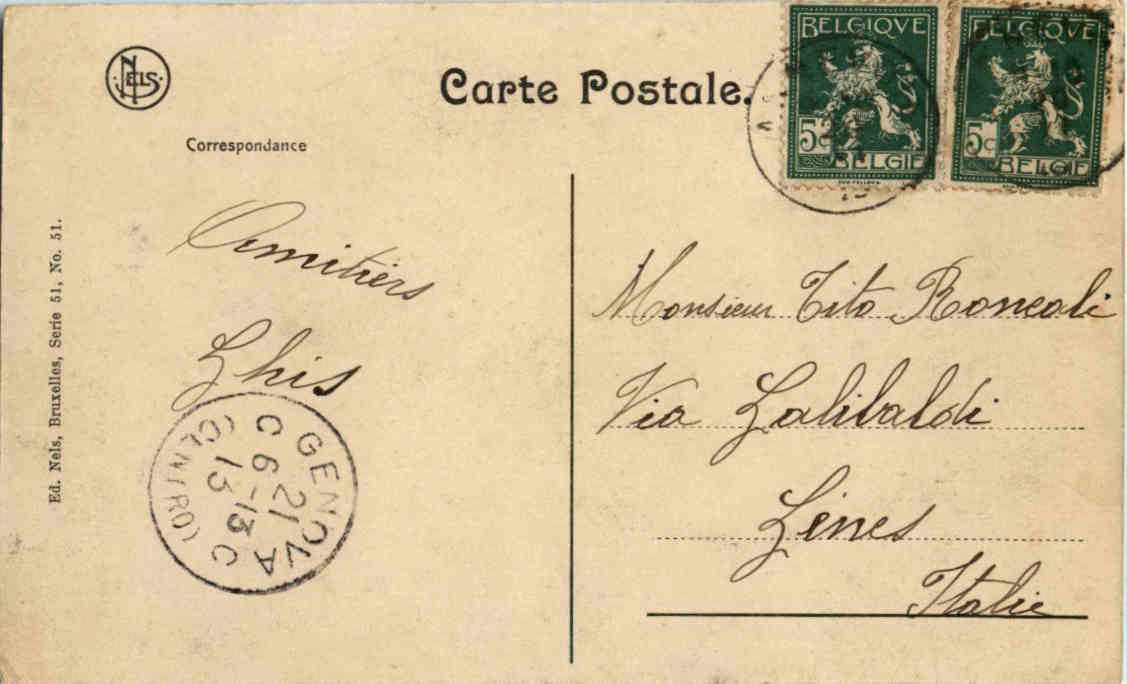 NELS
Carte Postale.
BELGIQVE
5c
BELGIE
BELGIQVE
5c
BELGIE
Correspondance
Amitiérs
Ghis
GENOVA
(CENTRO)
21
6-13
13
Monsieur Tito Roncali
Via Galibaldi
Gênes
Italie
Ed. Nels, Bruxelles, Serie 51, No. 51.